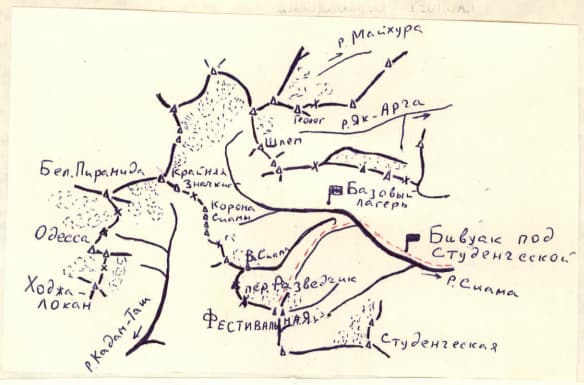 р. Майхура
Геолог
р. Як-Арча
Шлем
Бел. Пирамида
Крайняя
Значкист
Базовый
лагерь
Корона
Сиамы
Одесса
Бивуак под
Студенческой
В. Сиама
Ходжа-
Локан
пер. Разведчик
р. Сиама
Фестивальная
Студенческая
р. Кадам-Таш